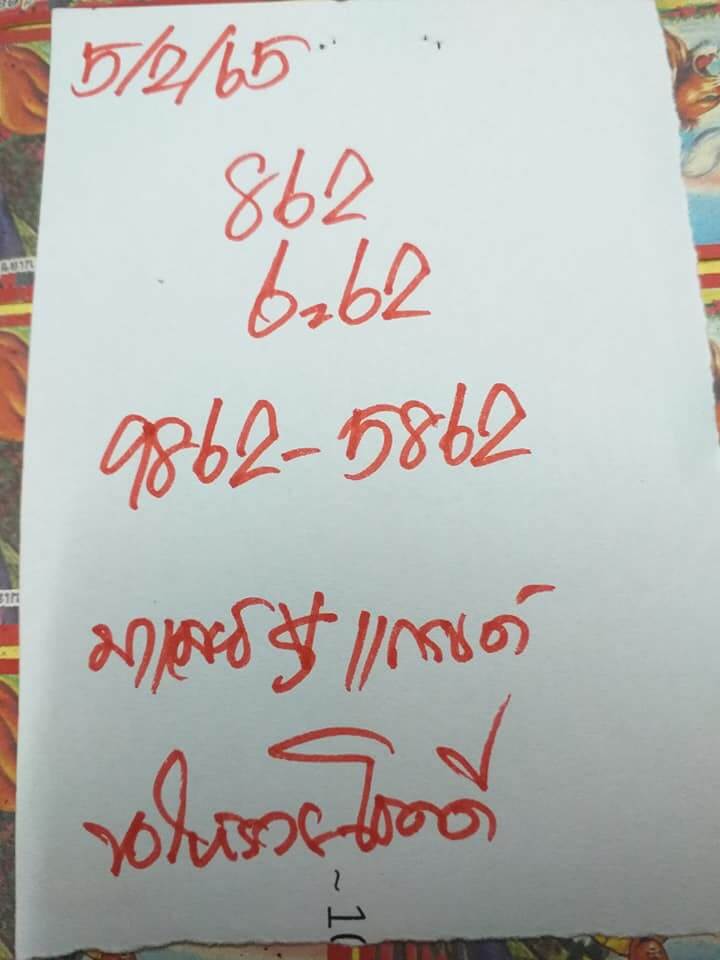 5/2/65
862
6,62
9862-5862
แกรนด์
ขอให้รวยโชคดี
~ 10